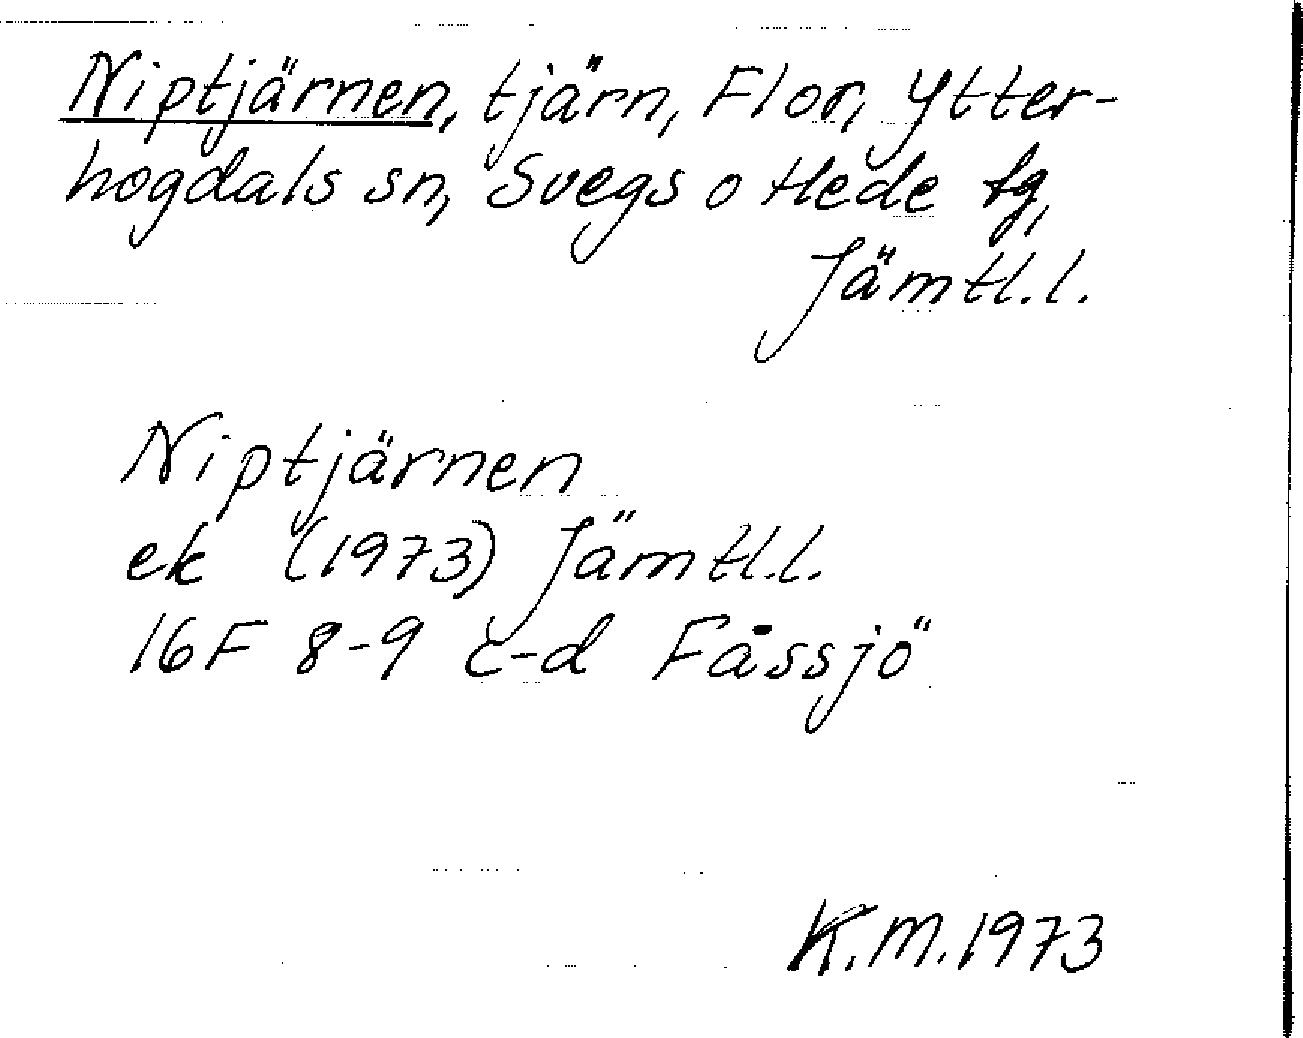 Niptjärnen, tjärn, Flor, Ytter-
hogdals sn, Svegs o Hede tg,
Jämtl.l.
Niptjärnen
ek (1973) Jämtl.l.
16F 8-9 c-d Fåssjö
K.M.1973